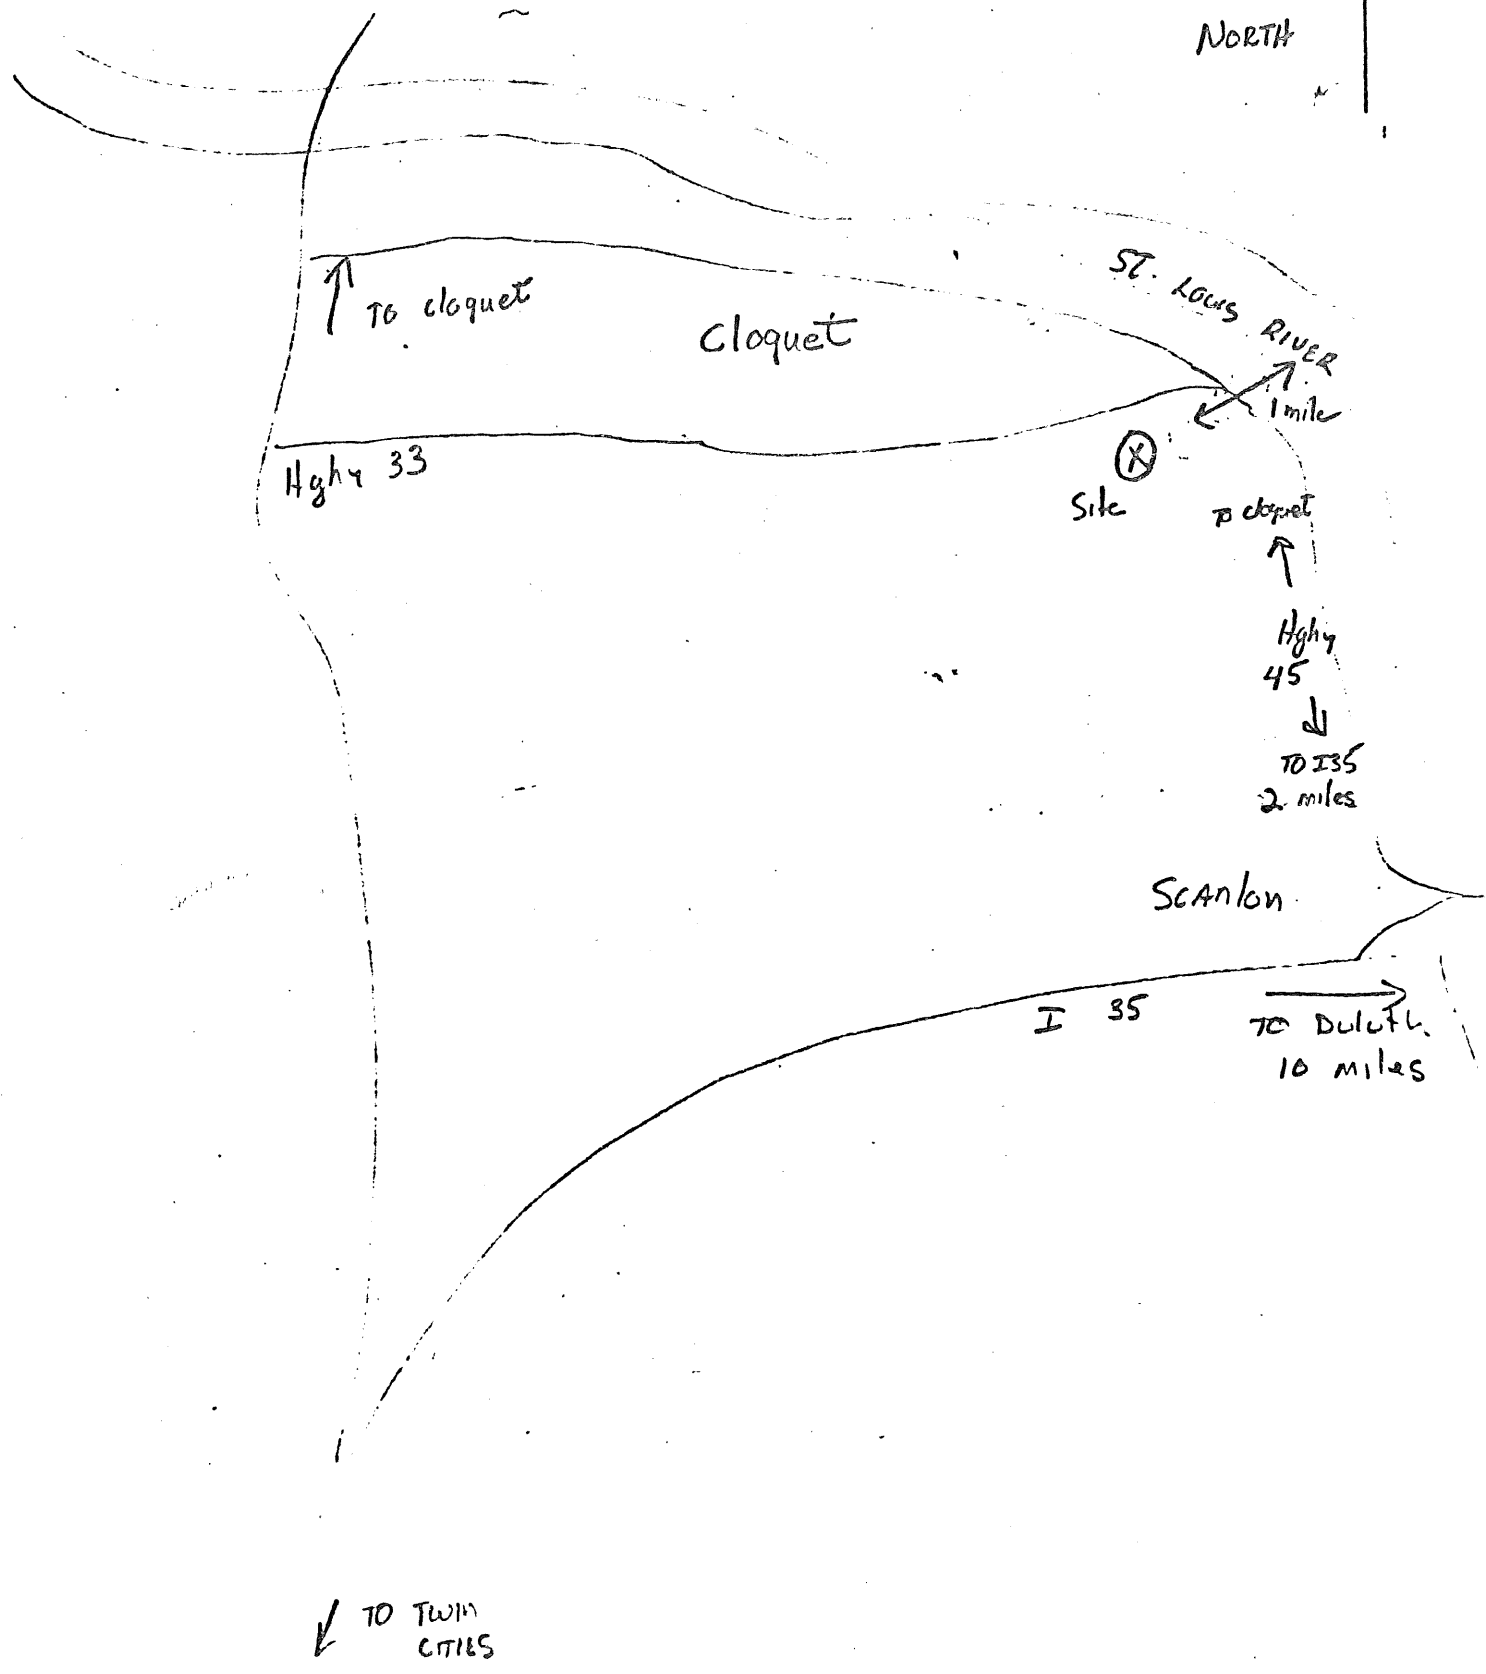 NORTH
ST. LOUIS RIVER
TO cloquet
Cloquet
1 mile
Hghy 33
X
Site
TO cloquet
Hghy
45
TO I35
2 miles
SCANlon
I 35
TO Duluth.
10 miles
TO TWIN
CITIES